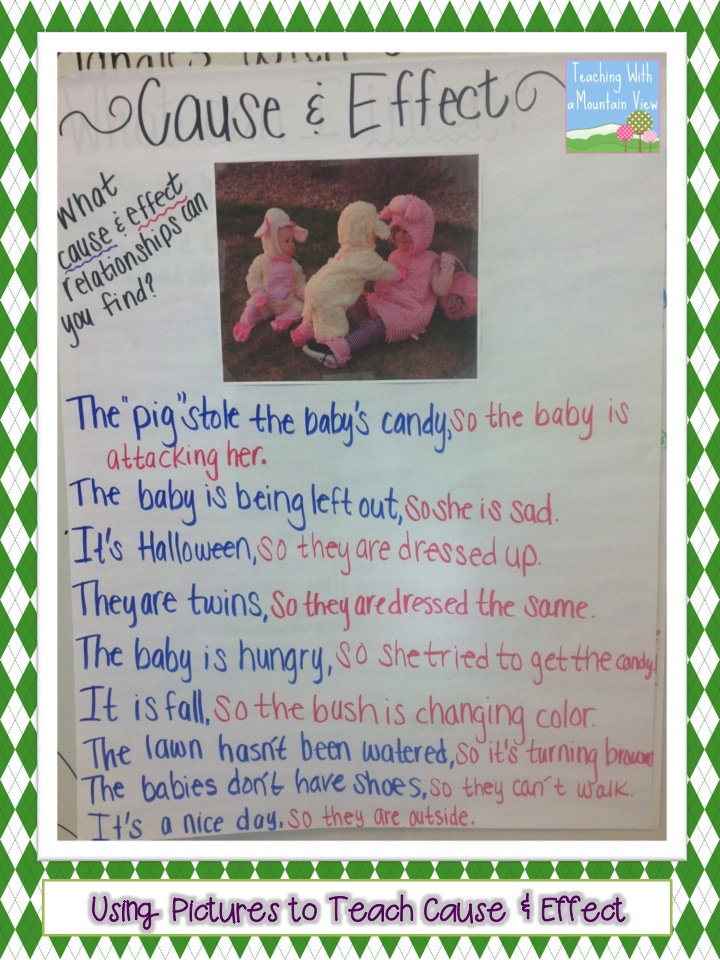 Teaching With
a Mountain View
Cause & Effect
What
cause & effect
relationships can
you find?
The "pig" stole the baby's candy, so the baby is
attacking her.
The baby is being left out, so she is sad.
It's Halloween, so they are dressed up.
They are twins, so they are dressed the same.
The baby is hungry, so she tried to get the candy!
It is fall, so the bush is changing color.
The lawn hasn't been watered, so it's turning brown
The babies don't have shoes, so they can't walk.
It's a nice day, so they are outside.
Using Pictures to Teach Cause & Effect